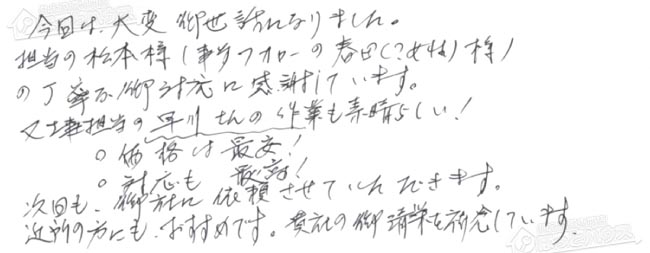 今回は、大変御世話になりました。
担当の松本様(事務フォローの春田(?女性)様)
の丁寧な御対応に感謝しています。
又工事担当の早川さんの作業も素晴らしい!
○価格は最安!
○対応も最高!
次回も、御社に依頼させていただきます。
近所の方にも、おすすめです。貴社の御清栄を祈念しています。